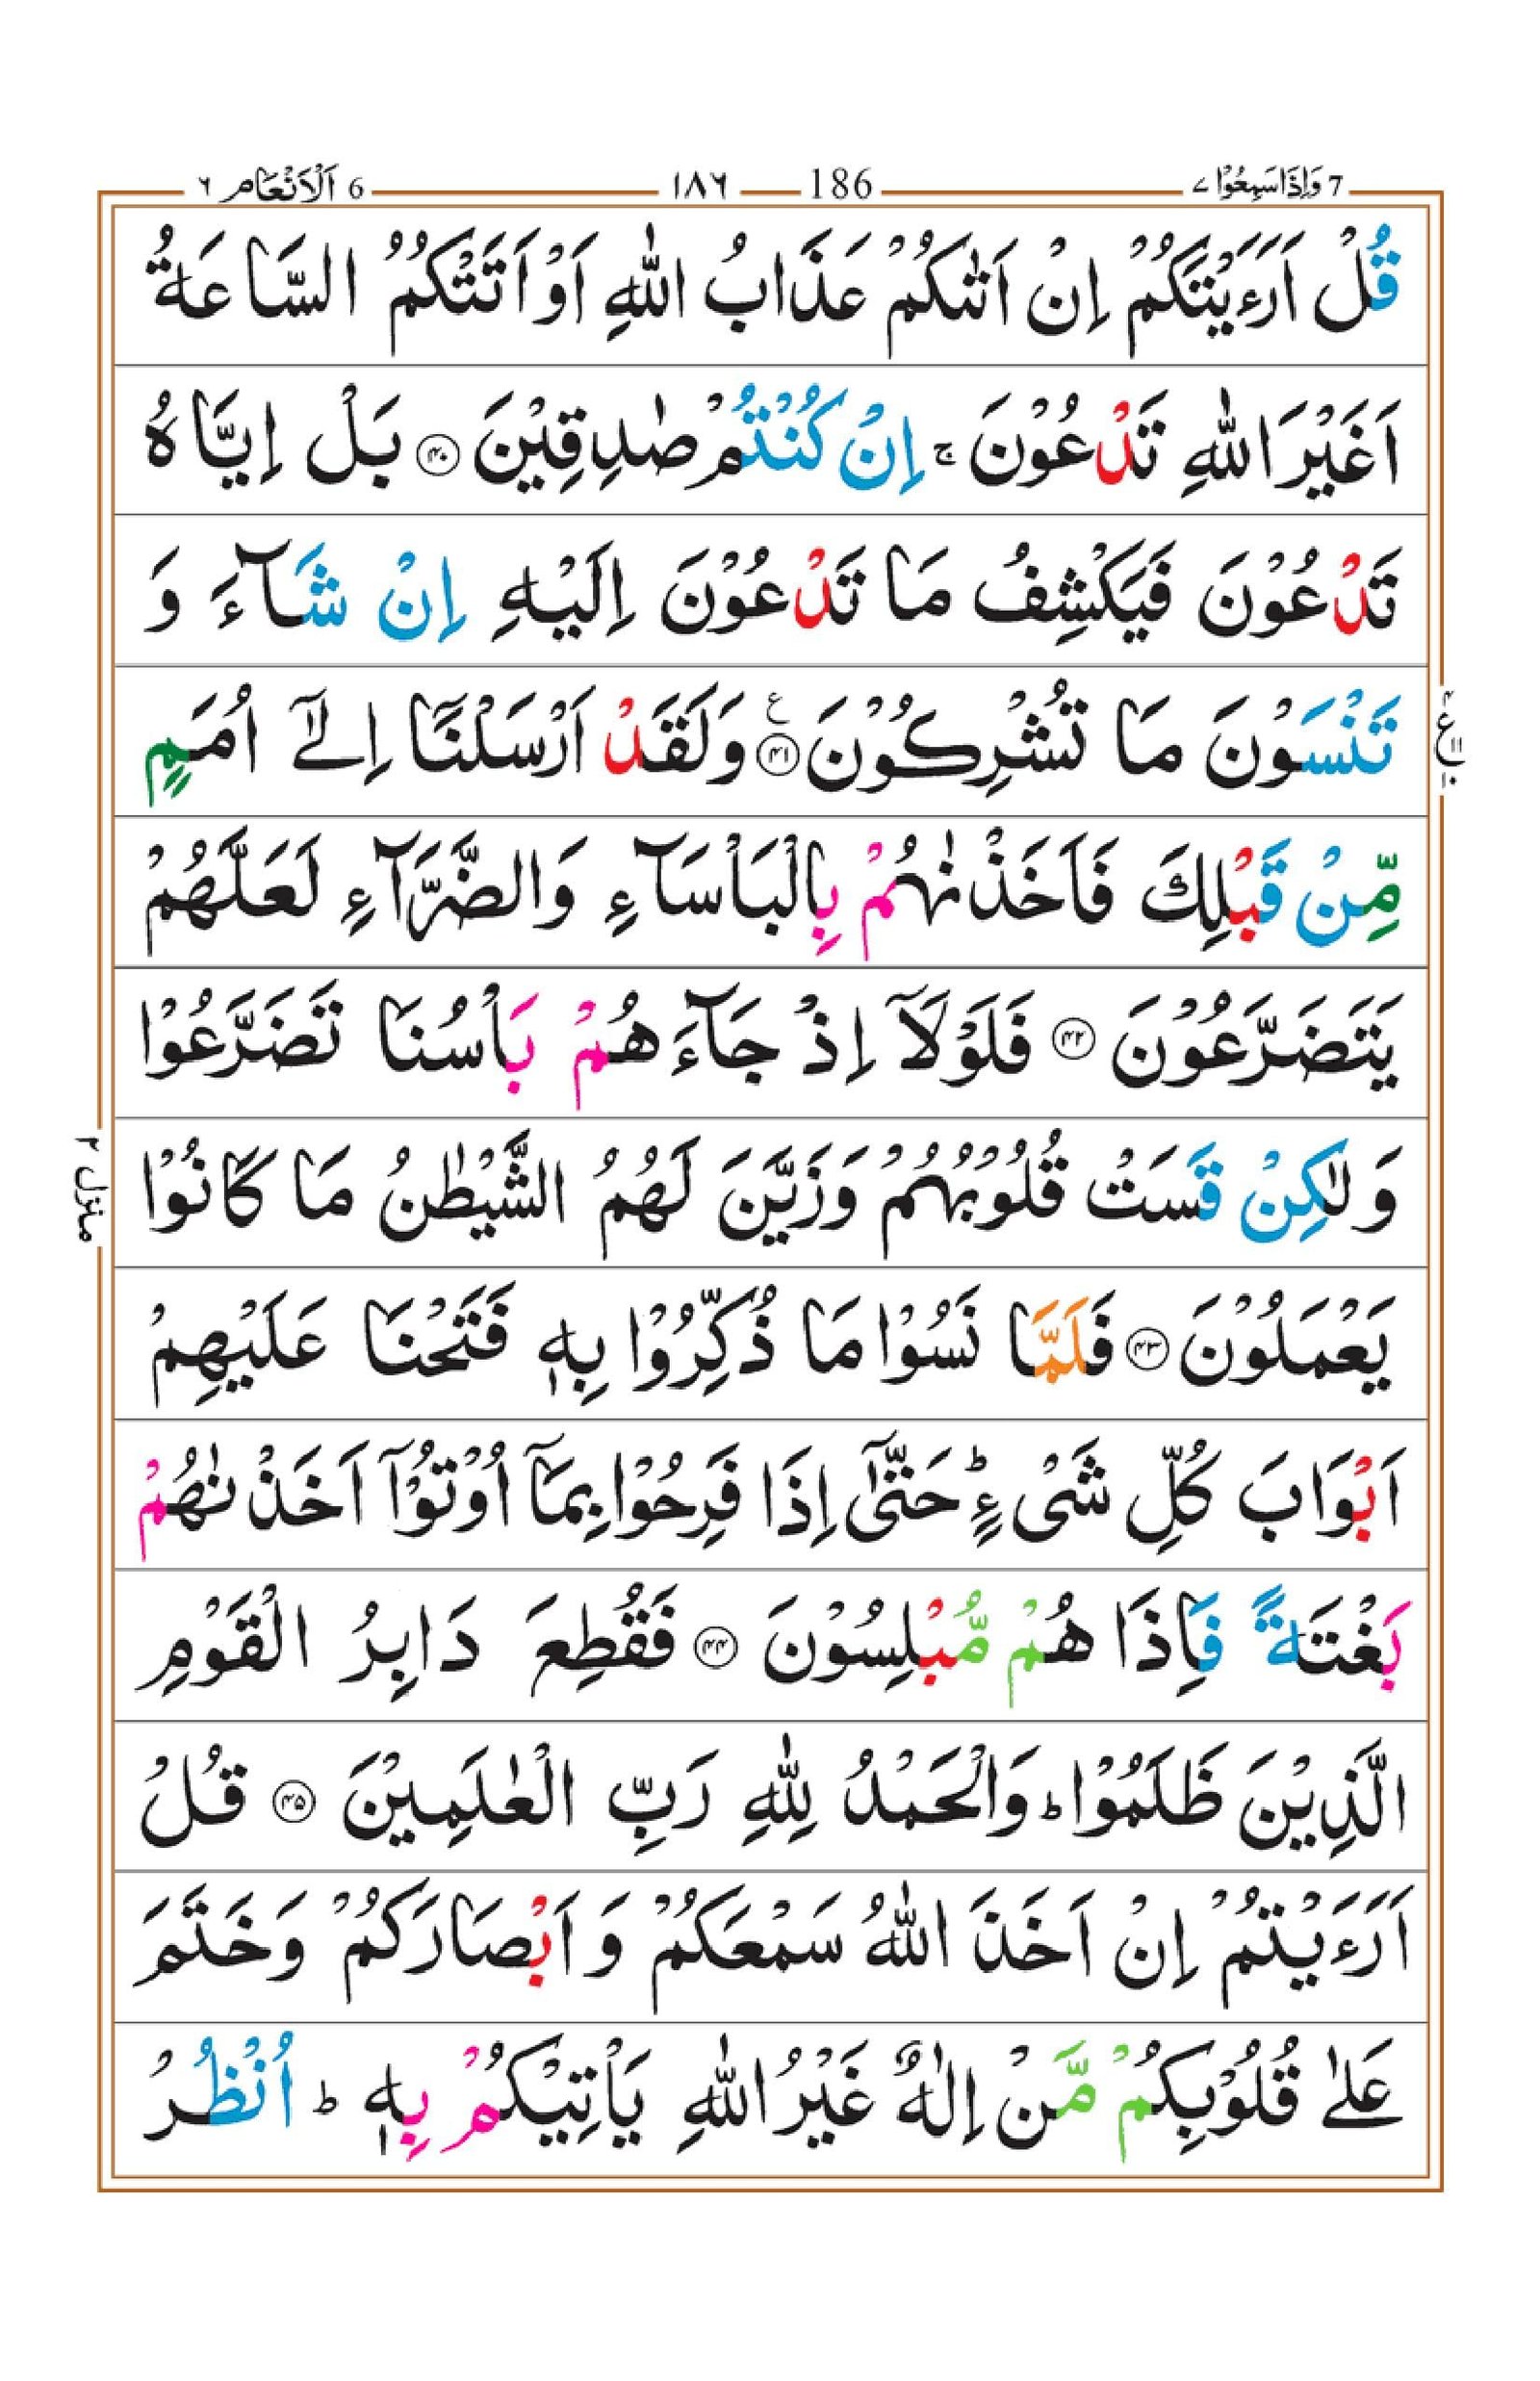 7 وَاِذَا سَمِعُوْا ٧ 186 ١٨٦ 6 اَلْاَنْعَام ٦
قُلْ اَرَءَيْتَكُمْ اِنْ اَتٰىكُمْ عَذَابُ اللّٰهِ اَوْ اَتَتْكُمُ السَّاعَةُ
اَغَيْرَ اللّٰهِ تَدْعُوْنَ ۚ اِنْ كُنْتُمْ صٰدِقِيْنَ ﴿۴۰﴾ بَلْ اِيَّاهُ
تَدْعُوْنَ فَيَكْشِفُ مَا تَدْعُوْنَ اِلَيْهِ اِنْ شَآءَ وَ
تَنْسَوْنَ مَا تُشْرِكُوْنَ ﴿۴۱﴾ ع وَلَقَدْ اَرْسَلْنَاۤ اِلٰۤى اُمَمٍ
۴ ع ۱۱ ۱۰
مِّنْ قَبْلِكَ فَاَخَذْنٰهُمْ بِالْبَاْسَآءِ وَالضَّرَّآءِ لَعَلَّهُمْ
يَتَضَرَّعُوْنَ ﴿۴۲﴾ فَلَوْلَاۤ اِذْ جَآءَهُمْ بَاْسُنَا تَضَرَّعُوْا
وَلٰكِنْ قَسَتْ قُلُوْبُهُمْ وَزَيَّنَ لَهُمُ الشَّيْطٰنُ مَا كَانُوْا
منزل ٢
يَعْمَلُوْنَ ﴿۴۳﴾ فَلَمَّا نَسُوْا مَا ذُكِّرُوْا بِهٖ فَتَحْنَا عَلَيْهِمْ
اَبْوَابَ كُلِّ شَىْءٍ ؕ حَتّٰۤى اِذَا فَرِحُوْا بِمَاۤ اُوْتُوْۤا اَخَذْنٰهُمْ
بَغْتَةً فَاِذَا هُمْ مُّبْلِسُوْنَ ﴿۴۴﴾ فَقُطِعَ دَابِرُ الْقَوْمِ
الَّذِيْنَ ظَلَمُوْا ؕ وَالْحَمْدُ لِلّٰهِ رَبِّ الْعٰلَمِيْنَ ﴿۴۵﴾ قُلْ
اَرَءَيْتُمْ اِنْ اَخَذَ اللّٰهُ سَمْعَكُمْ وَ اَبْصَارَكُمْ وَخَتَمَ
عَلٰى قُلُوْبِكُمْ مَّنْ اِلٰهٌ غَيْرُ اللّٰهِ يَاْتِيْكُمْ بِهٖ ؕ اُنْظُرْ